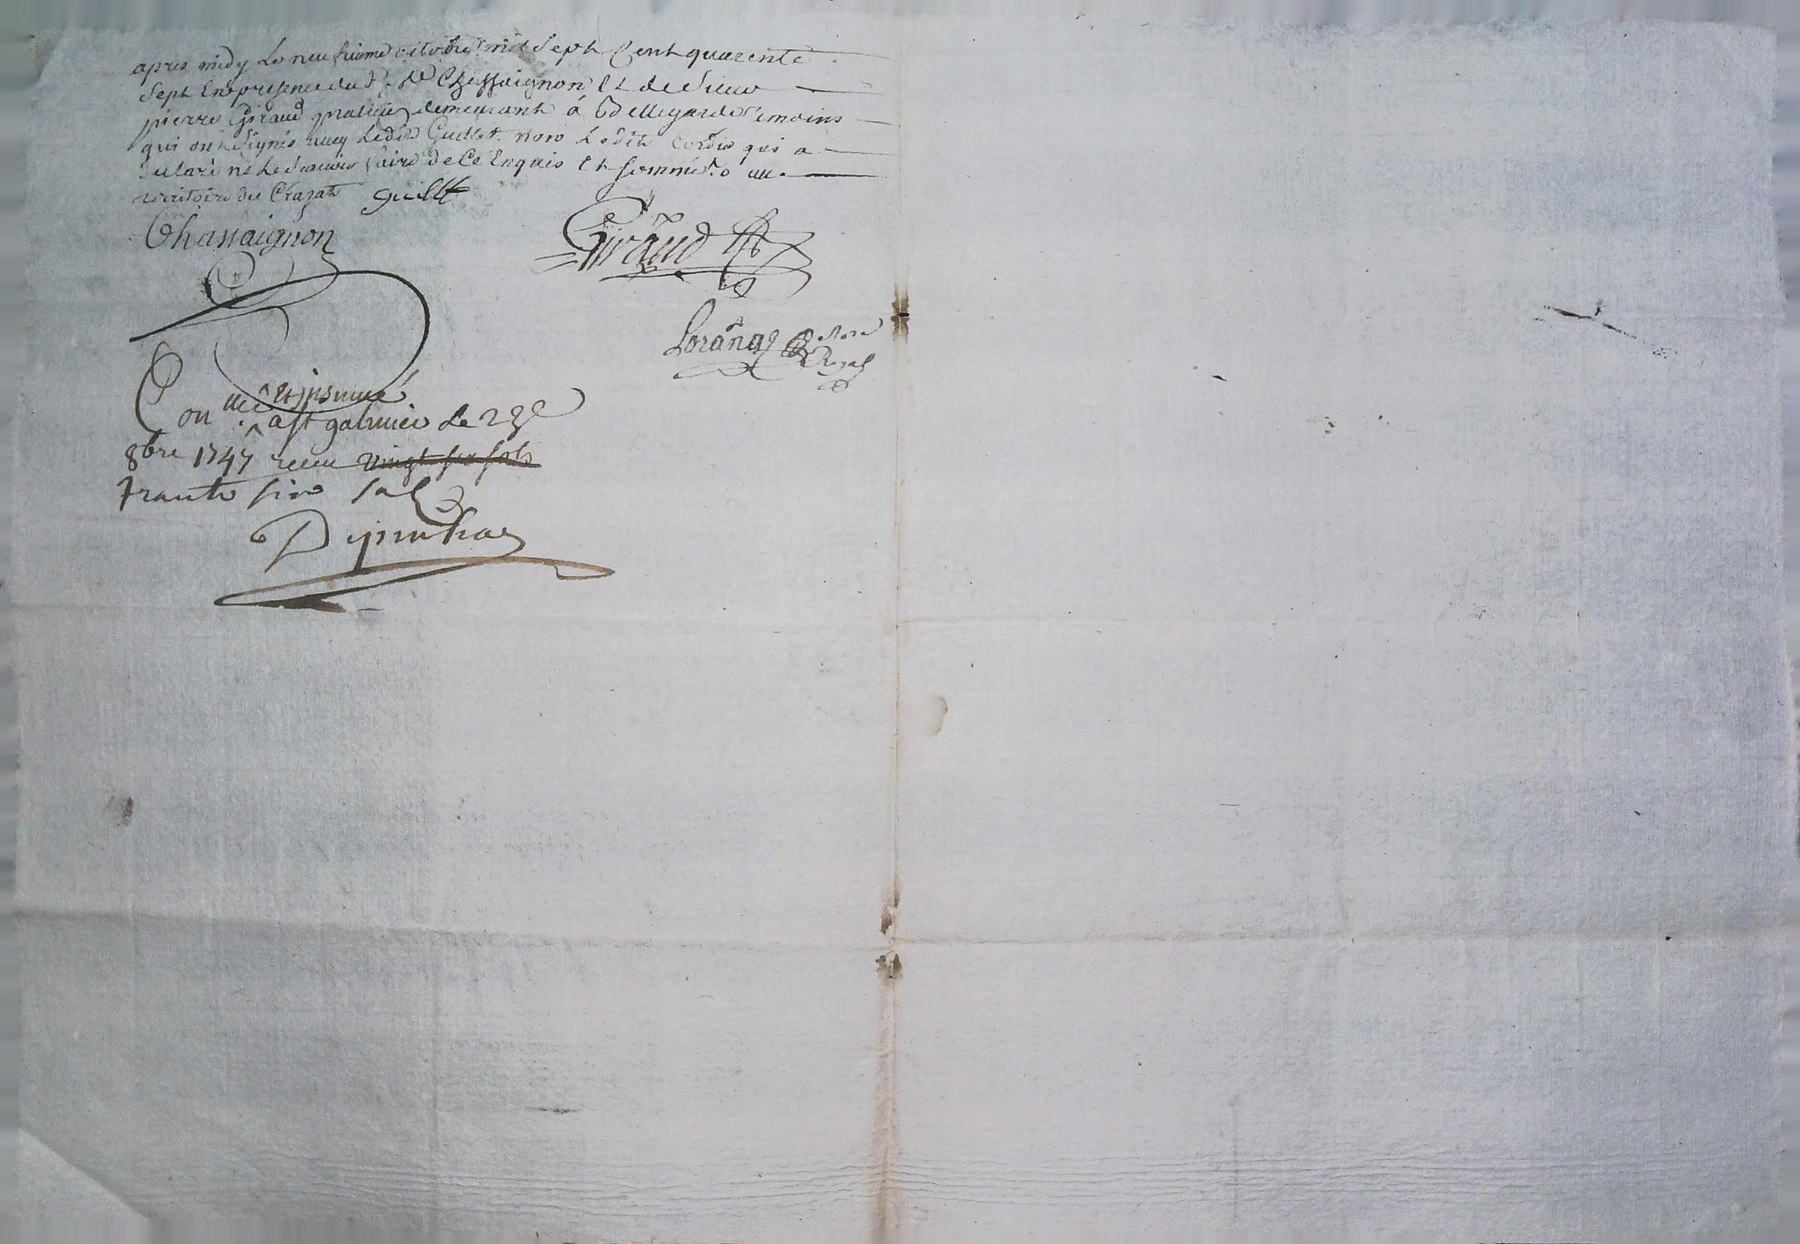 apres midy Le neufvieme octobre mil Sept Cent quarente
Sept En presence du Sr. de Chassaignon Et de Sieur
pierre Giraud praticien demeurant á Bellegarde temoins
qui ont Signés avec Ledit Guillot non Ledit qui a
declaré ne Le Scavoir faire de Ce Enquis Et Sommé
territoire du Crazat guillot
Chassaignon
Giraud
Loranas Notre
Royal
Con llé et insinué
a st galmier Le 23e
8bre 1747 receu vingt six sols
Trante six sols